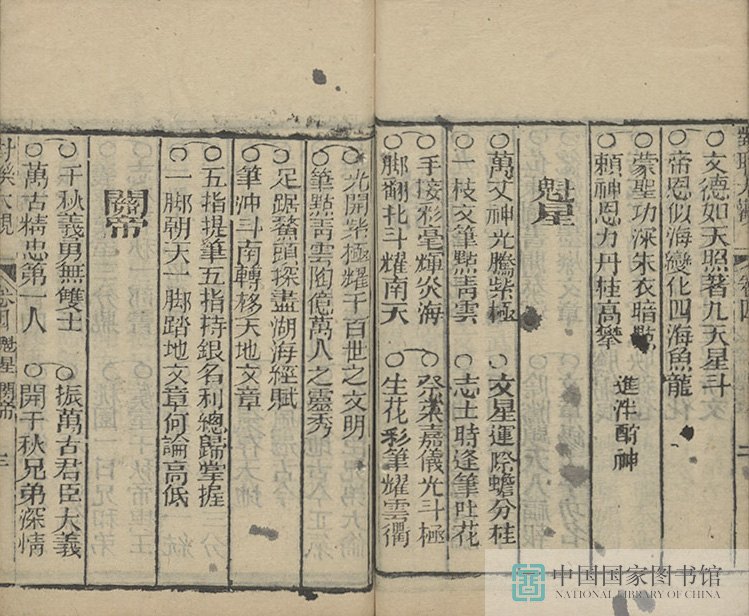 文德如天照著九天星斗
帝恩似海變化四海魚龍
蒙聖功深朱衣暗點
賴神恩力丹桂高攀
進泮酧神
魁星
萬丈神光騰紫極
文星運際蟾分桂
一枝文筆點青雲
志士時逢筆吐花
手接彩毫輝炎海
祭美嘉儀光斗極
脚翻北斗耀南天
生花彩筆耀雲衢
光開紫極耀千百世之文明
筆點青雲陶億萬人之靈秀
足踞鰲頭探盡湖海經賦
筆冲斗南轉移天地文章
五指提筆五指持銀名利總歸掌握
一脚朝天一脚踏地文章何論高低
關帝
千秋義勇無雙士
振萬古君臣大義
萬古精忠第一人
開千秋兄弟深情
卷四
魁星
關帝
三
中国国家图书馆
NATIONAL LIBRARY OF CHINA